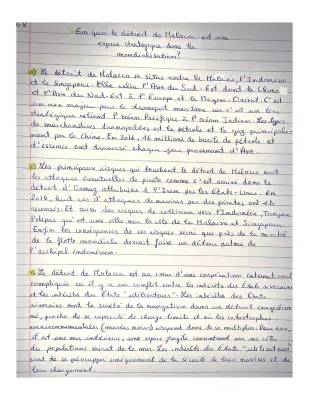 En quoi le détroit de Malacca est un
espace stratégique dans la
mondialisation?
Le détroit de Malacca se situe entre la Malaisie, l'Indonésie
et le Singapour. Elle relie l'Asie du Sud-Est dont la Chine
et l'Asie du Nord-Est à l'Europe et le Moyen-Orient. C'est
un axe majeur pour le transport maritime car c'est un lieu
stratégique reliant l'océan Pacifique à l'océan Indien. Les types
de marchandises transportées est le pétrole et le gaz principale-
ment par la Chine. En 2016, 16 millions de barils de pétrole et
d'essence ont traversé chaque jour provenant d'Asie.
Les principaux risques qui touchent le détroit de Malacca sont
les attaques éventuelles de pirate comme c'est arrivé dans le
détroit d'Ormuz attribués à l'Iran par les Etats-Unis. En
2016, huit cas d'attaques de navires par des pirates ont été
recensés. Et aussi des risques de collision vers l'Indonésie, Tanjung
Pelepas qui est une ville sur la côte de la Malaisie et Singapour.
Enfin les conséquences de ces risques serai que près de la moitié
de la flotte mondiale devrait faire un détour autour de
l'archipel indonésien.
Le détroit de Malacca est au cœur d'une coopération internationale
compliquée car il y a un conflit entre les intérêts des Etats riverains
et les intérêts des Etats "utilisateurs". Les intérêts des Etats
riverains sont la sûreté de la navigation dans un détroit congestion-
né, proche de sa capacité de charge limite et où les catastrophes
environnementales (marées noires) risquent donc de se multiplier. Pour eux,
il est une mer intérieure, une espace fragile concentrant sur ses côtes
des populations vivant de la mer. Les intérêts des Etats "utilisateurs"
sont de se préoccuper uniquement de la sécurité de leurs navires et de
leur chargement.